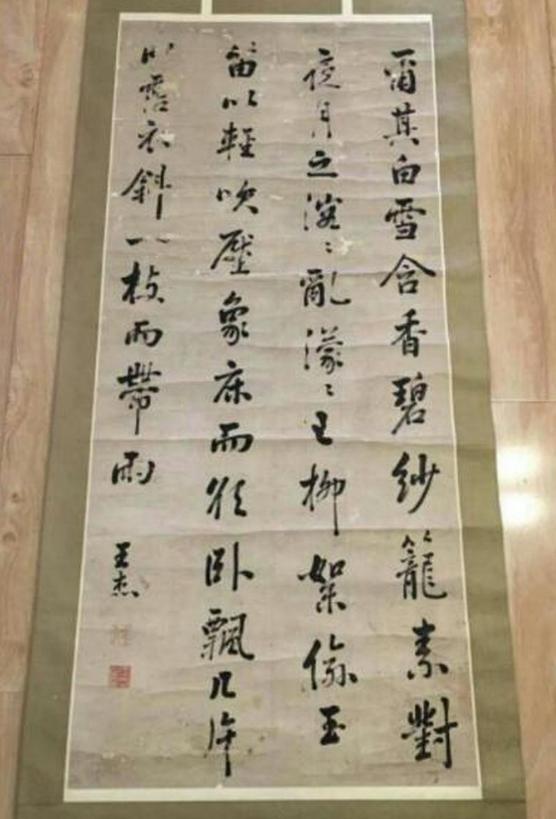 爾其白雪含香碧紗籠素對
夜月之溶〻亂濛〻之柳絮玉
笛以輕吹壓象床而欲臥飄几
以霑衣斜一枝而帶雨
王杰